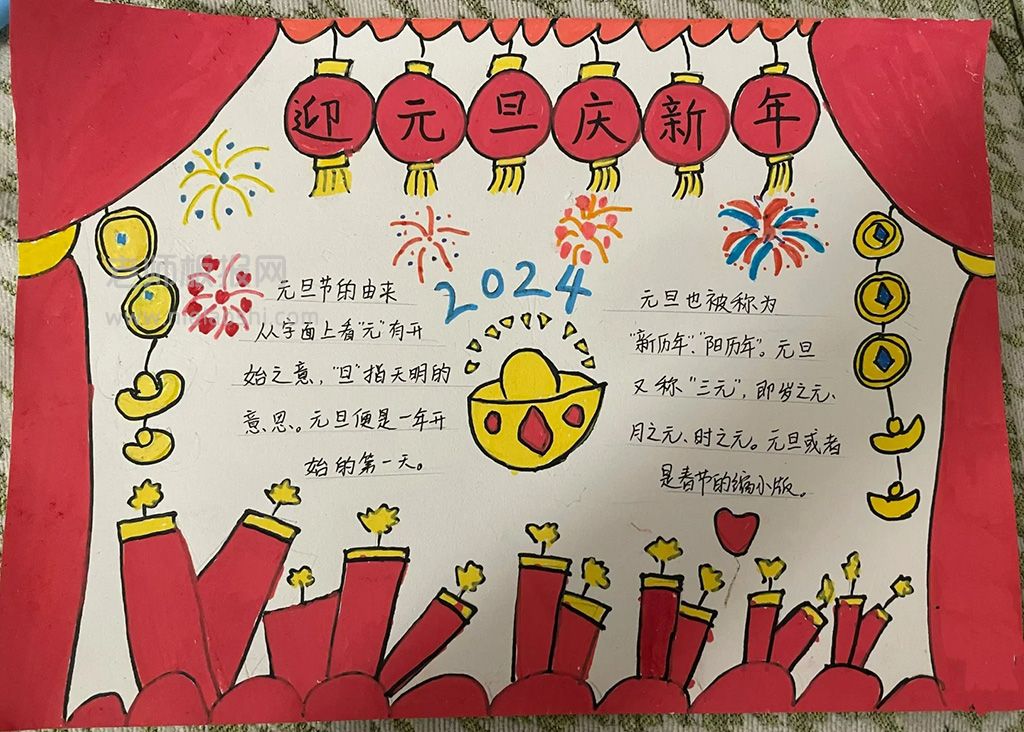 迎元旦庆新年
2024
元旦节的由来
从字面上看"元"有开
始之意，"旦"指天明的
意思。元旦便是一年开
始的第一天。
元旦也被称为
"新历年"、"阳历年"。元旦
又称"三元"，即岁之元、
月之元、时之元。元旦或者
是春节的缩小版。